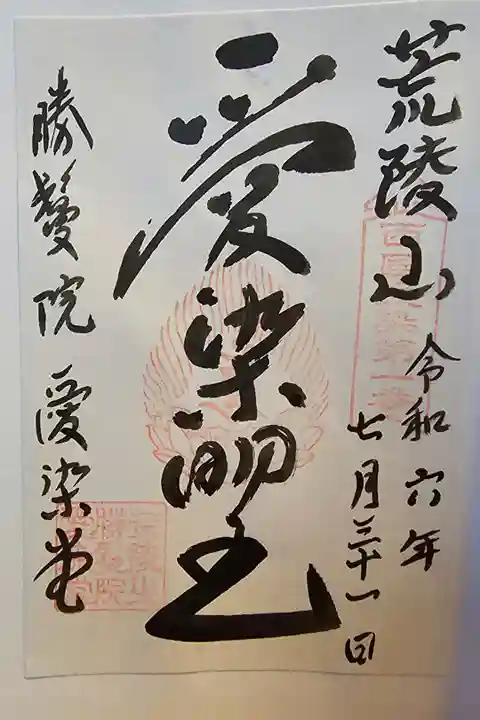 荒陵山
令和六年
七月三十一日
愛染明王
勝鬘院 愛染堂